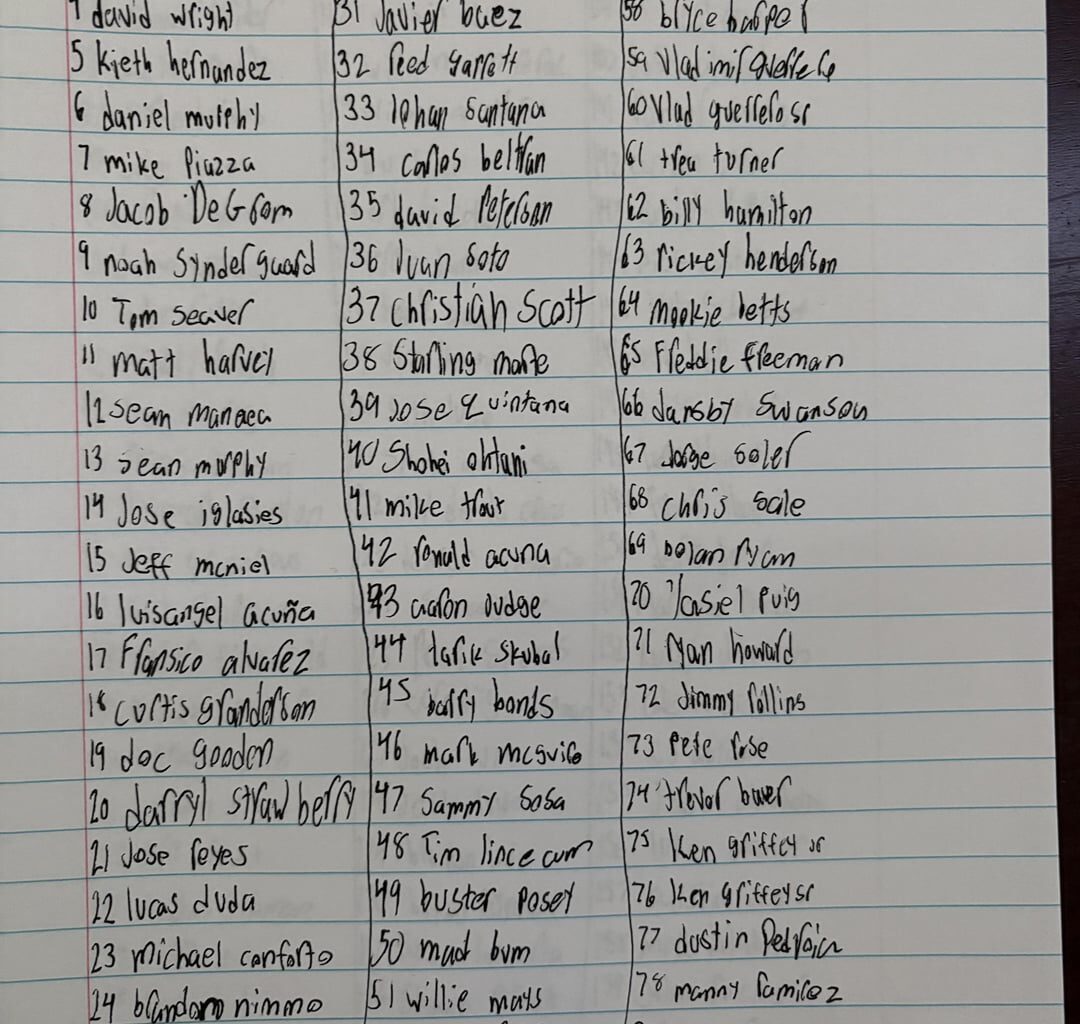 david wright
5 kieth hernandez
6 daniel murphy
7 mike Piazza
8 Jacob DeGrom
9 noah Synderguard
10 Tom seaver
11 matt harvey
12 sean manaea
13 sean murphy
14 Jose iglasies
15 Jeff mcniel
16 luisangel acuña
17 Fransico alvarez
18 curtis granderson
19 doc gooden
20 darryl strawberry
21 Jose reyes
22 lucas duda
23 michael conforto
24 brandon nimmo
31 Javier baez
32 reed garrett
33 Johan santana
34 carlos beltran
35 david Peterson
36 Juan soto
37 christian scott
38 Starling marte
39 Jose quintana
40 Shohei ohtani
41 mike trout
42 ronald acuna
43 aaron Judge
44 tarik skubal
45 barry bonds
46 mark mcguire
47 Sammy Sosa
48 Tim lincecum
49 buster Posey
50 mad bum
51 willie mays
58 bryce harper
59 Vladimir guerrero
60 Vlad guerrero sr
61 trea turner
62 billy hamilton
63 rickey henderson
64 mookie betts
65 Freddie freeman
66 dansby Swanson
67 Jorge soler
68 chris sale
69 nolan ryan
70 Yasiel Puig
71 ryan howard
72 Jimmy rollins
73 Pete rose
74 trevor bauer
75 Ken griffey Jr
76 Ken griffey sr
77 dustin Pedroia
78 manny ramirez